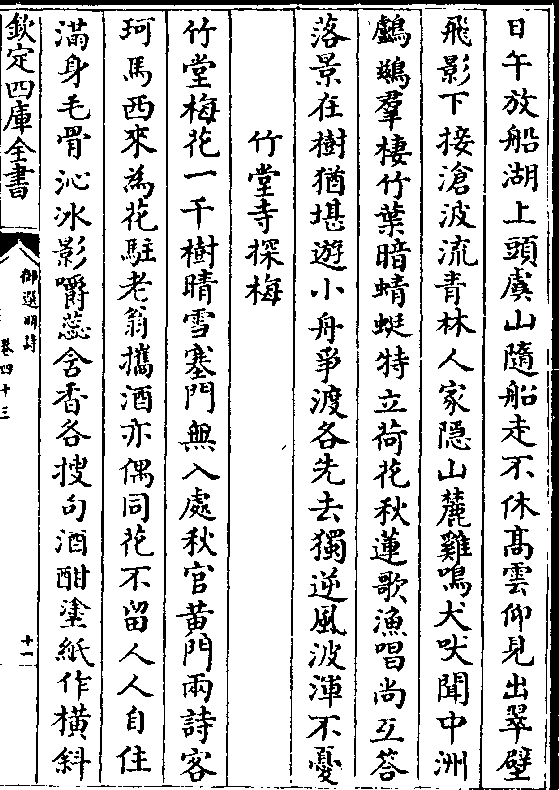 日午放船湖上頭虞山隨船走不休髙雲仰見出翠壁
飛影下接滄波流青林人家隠山麓雞鳴犬吠聞中洲
鸕鷀羣棲竹葉暗蜻蜓特立荷花秋蓮歌漁唱尚互答
落景在樹猶堪遊小舟爭渡各先去獨逆風波渾不憂
竹堂寺探梅
竹堂梅花一千樹晴雪塞門無入處秋官黄門兩詩客
珂馬西來為花駐老翁攜酒亦偶同花不留人人自住
滿身毛骨沁冰影嚼蕊含香各搜句酒酣塗紙作橫斜
欽定四庫全書
御選明詩
卷四十三
十一